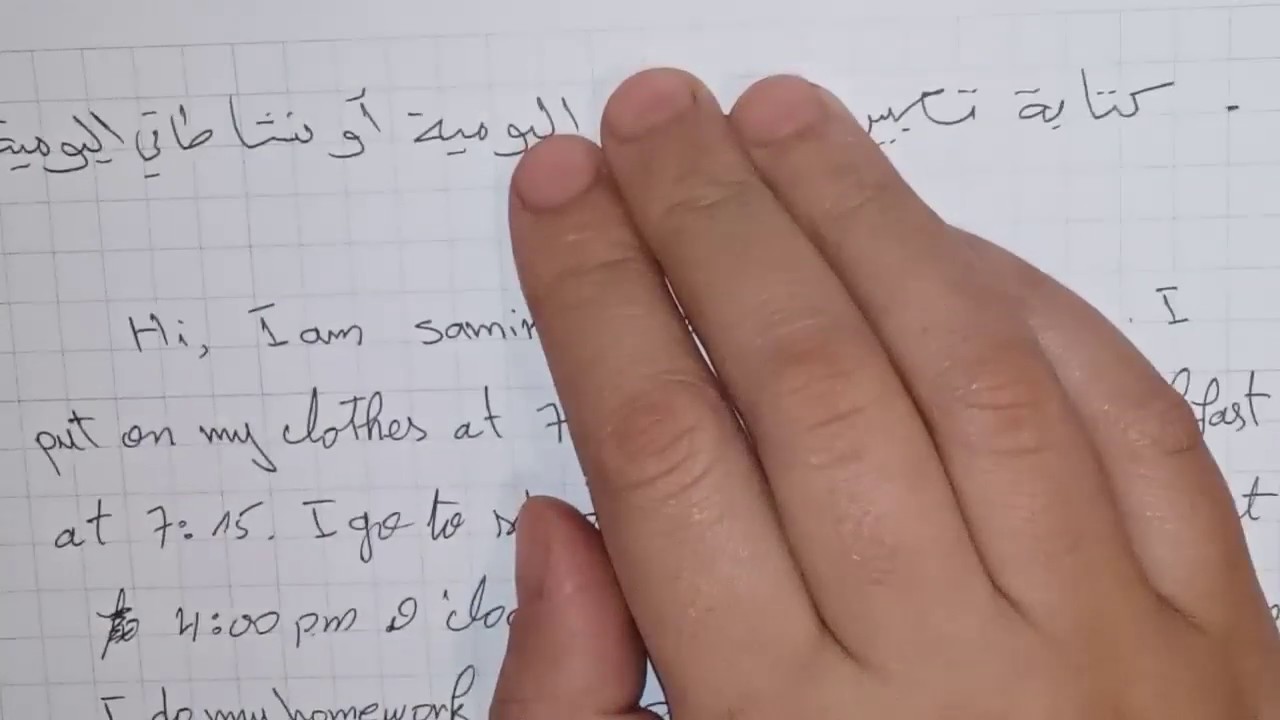 كتابة تعبير اليومية أو نشاطاتي اليومية
Hi, I am samir . I
put on my clothes at 7 fast
at 7:15. I go to t
to 4:00 pm O'clo
I do my homework